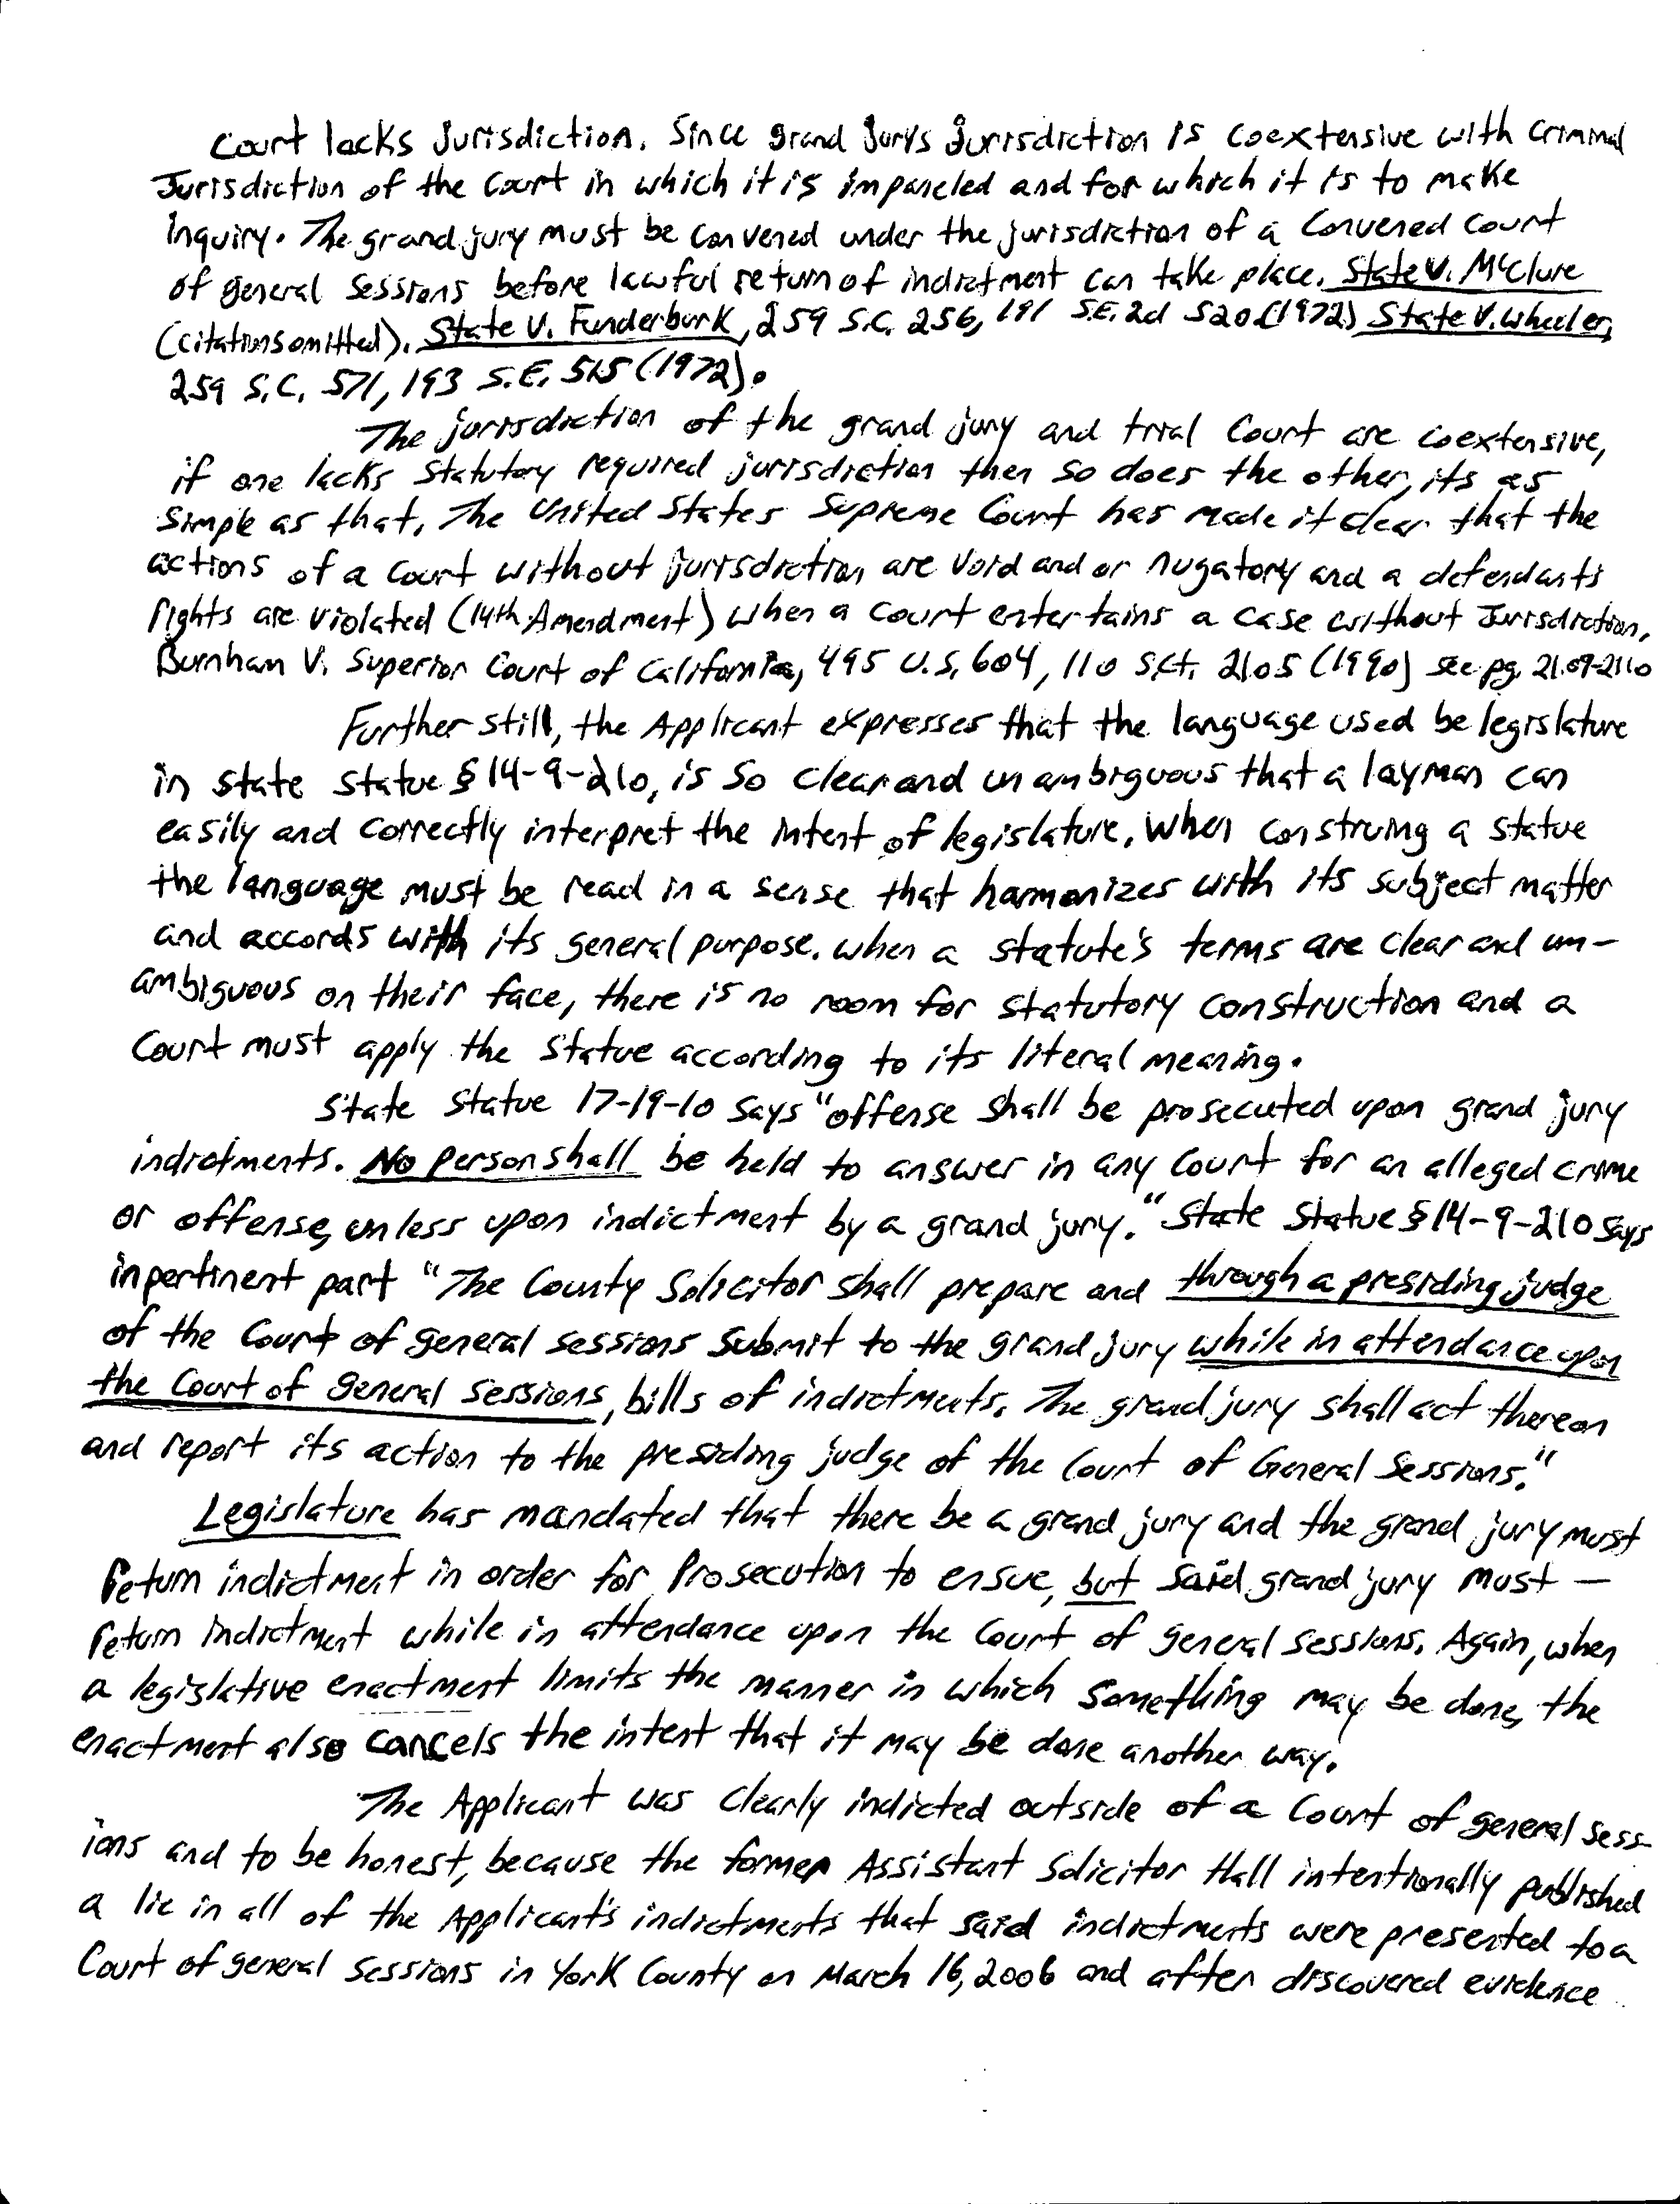 Court lacks Jurisdiction. Since grand Jurys Jurisdiction is coextensive with Criminal
Jurisdiction of the Court in which it is impaneled and for which it is to make
Inquiry. The grand jury must be convened under the jurisdiction of a Convened Court
of general Sessions before lawful return of indictment can take place. State V. McClure
(citations omitted). State V. Funderburk, 259 S.C. 256, 191 S.E.2d 520 (1972) State V. Wheeler,
259 S.C. 571, 193 S.E. 515 (1972).
The jurisdiction of the grand jury and trial Court are coextensive,
if one lacks Statutory required jurisdiction then so does the other, its as
Simple as that. The United States Supreme Court has made it clear that the
actions of a Court without jurisdiction are Void and or nugatory and a defendants
rights are violated (14th Amendment) when a Court entertains a case without Jurisdiction,
Burnham V. Superior Court of California, 495 U.S. 604, 110 S.Ct. 2105 (1990) see pg. 2109-2110
Further still, the Applicant expresses that the language used be legislature
in state statue § 14-9-210, is so clear and unambiguous that a layman can
easily and correctly interpret the intent of legislature. When construing a statue
the language must be read in a sense that harmonizes with its subject matter
and accords with its general purpose. when a statute's terms are clear and un-
ambiguous on their face, there is no room for statutory construction and a
Court must apply the statue according to its literal meaning.
State statue 17-19-10 says "offense shall be prosecuted upon grand jury
indictments. No person shall be held to answer in any Court for an alleged crime
or offense, unless upon indictment by a grand jury." State Statue § 14-9-210 says
in pertinent part "The County Solicitor shall prepare and through a presiding judge
of the Court of general sessions submit to the grand jury while in attendance upon
the Court of general sessions, bills of indictments. The grand jury shall act thereon
and report its action to the presiding judge of the Court of General Sessions."
Legislature has mandated that there be a grand jury and the grand jury must
return indictment in order for Prosecution to ensue, but said grand jury must —
return indictment while in attendance upon the Court of general sessions. Again, when
a legislative enactment limits the manner in which something may be done, the
enactment also cancels the intent that it may be done another way.
The Applicant was clearly indicted outside of a Court of general sess-
ions and to be honest, because the former Assistant Solicitor Hall intentionally published
a lie in all of the Applicant's indictments that said indictments were presented to a
Court of general sessions in York County on March 16, 2006 and after discovered evidence